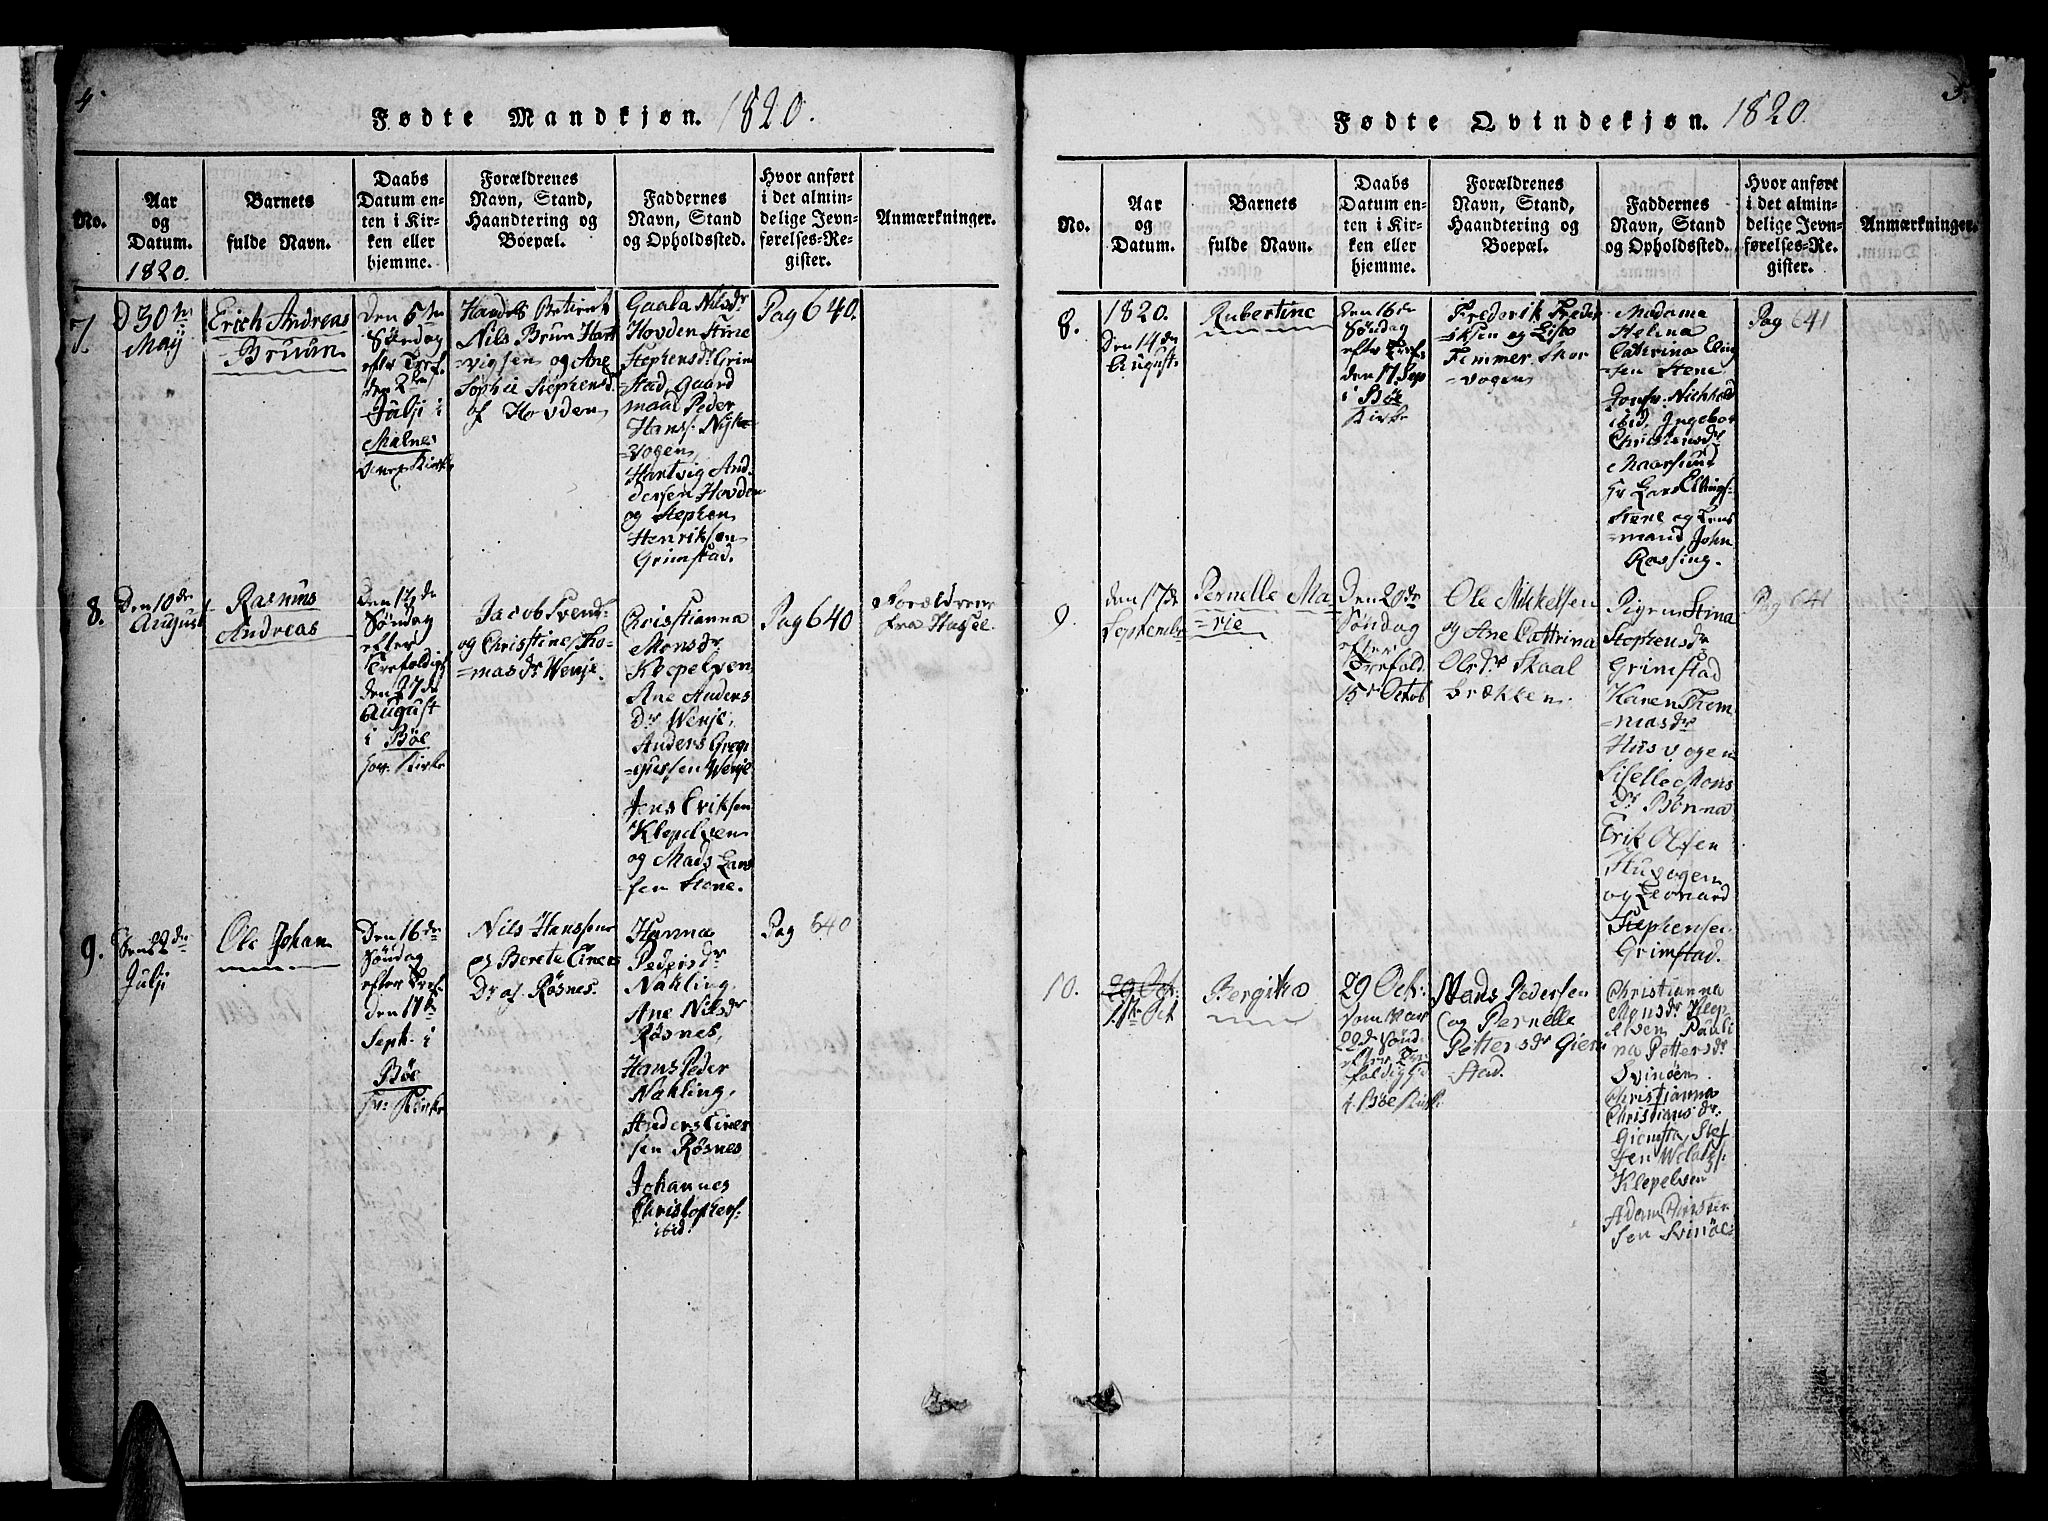 4
Fødte Mandkjøn. 1820.
No.
Aar
og
Datum.
1820.
Barnets
fulde Navn.
Daabs
Datum en-
ten i Kir-
ken eller
hjemme.
Forældrenes
Navn, Stand,
Haandtering og
Boepæl.
Faddernes
Navn, Stand
og Opholdssted.
Hvor anført
i det almin-
delige Jevn-
førelses-Re-
gister.
Anmærkninger.
7.
D 30te
May
Erich Andreas
Bruum
Den 5te
Søndag
efter Tref.
den 2den
Julji i
Malnes
Kirke
Nils Brun Hart
vigsen og Ane
Sophie Stephensdr
af Hovden
Nilsdr
Hovden Stine
Stephensdr Grim
stad, Gaard
mand Peder
Hanss. Nyke
=vogen,
Hartvig And
dersen Hovden
og Stephen
Henriksen
Grimstad.
Pag 640.
8.
Den 10de
August
Rasmus
Andreas
Den 12de
Søndag
efter
Trefoldigh
den 27de
August
i Böe
Kirke
Jacob Svend
og Christine Tho
=masdr Wenje.
Christianna
Monsdr
Klepelven
Ane Anders
Dr Wenje,
Anders Greg
=gussen Wenje
Jens Eriksen
Klepelven
og Mads Lars
sen Stene.
Pag 640
Forældrene
fra Hassel
9.
Den 22de
Julji
Ole Johan
Den 16de
Søndag
efter Tref.
den 17de
Septr i
Böe
Kirke
Nils Hanssen
og Berete Einers
Dr af Røsnes.
Hanna
Pedersdr
Nykling,
Ane Nilsdr
Røsnes,
Hans Peder
Nykling,
Anders Einer
sen Røsnes
Johannes
Christophers:
ibid.
Pag 640
5.
Fødte Qvindekjøn. 1820.
No.
Aar
og
Datum.
Barnets
fulde Navn.
Daabs
Datum en-
ten i Kir-
ken eller
hjemme.
Forældrenes
Navn, Stand,
Haandtering og
Boepæl.
Faddernes
Navn, Stand
og Opholdssted.
Hvor anført
i det almin-
delige Jevn-
førelses-Re-
gister.
Anmærkninger.
8.
1820.
Den 14de
August
Rubertine
Den 16de
Søndag
efter Tref.
den 17. Sep
i Böe
Kirke
Frederik Freder
iksen og Lise
Femmer Skor
=vogen
Madama
Helena
Cathrina Elling
sen Stene
Jomfr. Nichhol
ibid, Ingebor
Christensdr
Maarsund
Hr Lars Ellings.
Stene og Lens
=mand John
Rassing.
Pag 641
9.
den 17de
September
Pernelle Ma
=rie
Den 20de
Söndag
efter
Trefold.
15de Octob
Ole Mikkelsen
og Ane Cattrina
Olsdr Skaal
brækken.
Pigen Stina
Stephensdr
Grimstad
Karen Thom
=masdr
Husvogen
Siselle Mons
Dr Bönna
Erik Olsen
Husvogen
og Leonard
Stephensen
Grimstad.
Pag 641
10.
29 Oct:
11te Oct
Bergitha
29 Octr:
som var
22de Sönd
efter Tre
foldighed
i Böe Kirk:
Hans Pedersen
og Pernelle
Pettersdr Giem
stad.
Christianna
Monsdr Klep
elven Pauli
na Pettersdr
Svinöen
Christianna
Christiansdr.
Giemsta,
Klepelven
Adam Christen
sen Svinöe